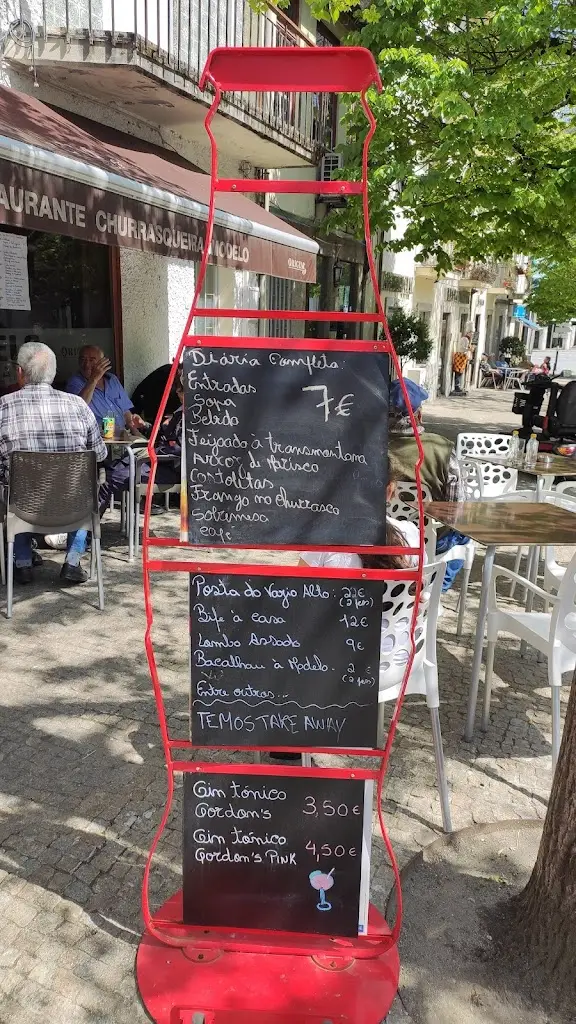 AURANTE CHURRASQUEIRA MODELO
Diária Completa:
Entradas
Sopa
7€
Bebida
Feijoada à transmontana
Arroz di Marisco
Costoletas
Frango no Churrasco
Sobremesa
Café
Posta do Vazio Alto: 22€
(2 pess)
Bife à casa 12€
Lombo Assado 9€
Bacalhau à Modelo. 2 €
(2 pess)
Entre outras...
TEMOS TAKE AWAY
Gim tónico
Gordon's 3,50€
Gim tónico
Gordon's PINK 4,50€